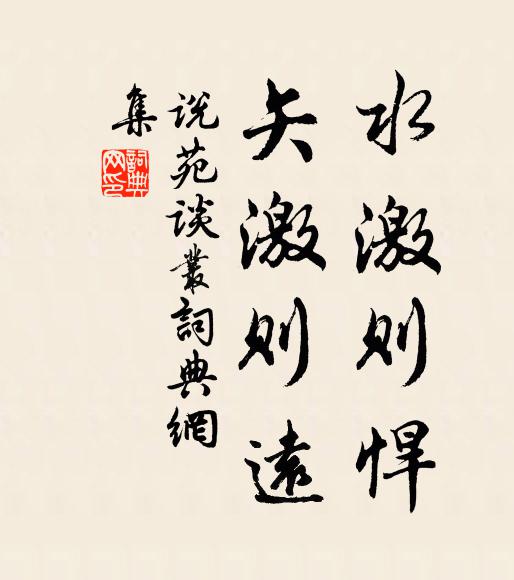 水激则悍
矢激则遠
说苑谈叢詞典網
集
詞典
网印